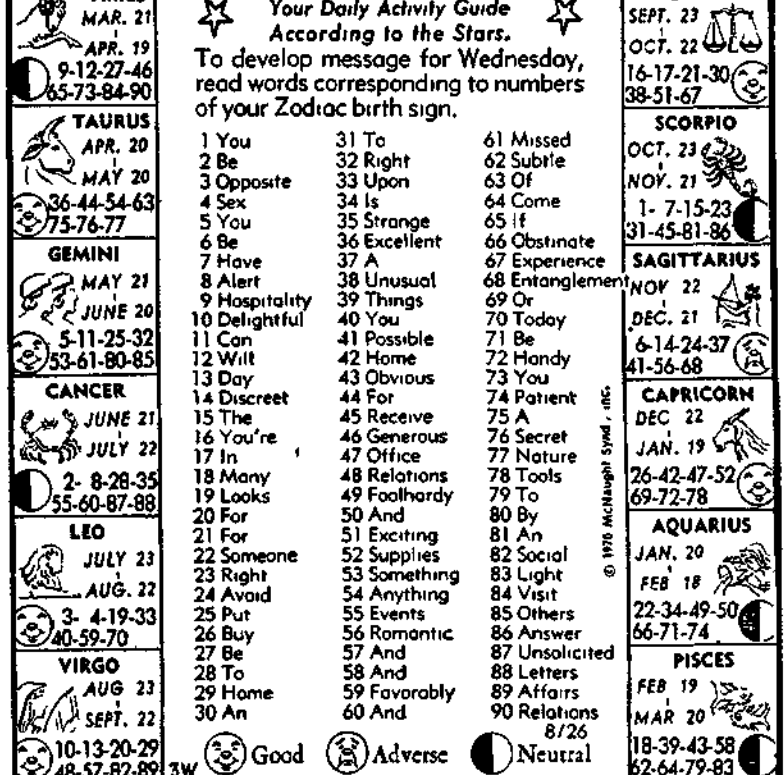 MAR. 21
APR. 19
9-12-27-46
65-73-84-90
TAURUS
APR. 20
MAY 20
36-44-54-63
75-76-77
GEMINI
MAY 21
JUNE 20
5-11-25-32
53-61-80-85
CANCER
JUNE 21
JULY 22
2- 8-28-35
55-60-87-88
LEO
JULY 23
AUG. 22
3- 4-19-33
40-59-70
VIRGO
AUG 23
SEPT. 22
10-13-20-29
48-57-82-89
Your Daily Activity Guide
According to the Stars.
To develop message for Wednesday,
read words corresponding to numbers
of your Zodiac birth sign.
1 You
2 Be
3 Opposite
4 Sex
5 You
6 Be
7 Have
8 Alert
9 Hospitality
10 Delightful
11 Can
12 Will
13 Day
14 Discreet
15 The
16 You're
17 In
18 Many
19 Looks
20 For
21 For
22 Someone
23 Right
24 Avoid
25 Put
26 Buy
27 Be
28 To
29 Home
30 An
31 To
32 Right
33 Upon
34 Is
35 Strange
36 Excellent
37 A
38 Unusual
39 Things
40 You
41 Possible
42 Home
43 Obvious
44 For
45 Receive
46 Generous
47 Office
48 Relations
49 Foolhardy
50 And
51 Exciting
52 Supplies
53 Something
54 Anything
55 Events
56 Romantic
57 And
58 And
59 Favorably
60 And
61 Missed
62 Subtle
63 Of
64 Come
65 If
66 Obstinate
67 Experience
68 Entanglement
69 Or
70 Today
71 Be
72 Handy
73 You
74 Patient
75 A
76 Secret
77 Nature
78 Tools
79 To
80 By
81 An
82 Social
83 Light
84 Visit
85 Others
86 Answer
87 Unsolicited
88 Letters
89 Affairs
90 Relations
8/26
3W
Good
Adverse
Neutral
© 1970 McNaught Synd, INC.
SEPT. 23
OCT. 22
16-17-21-30
38-51-67
SCORPIO
OCT. 23
NOV. 21
1- 7-15-23
31-45-81-86
SAGITTARIUS
NOV 22
DEC. 21
6-14-24-37
41-56-68
CAPRICORN
DEC 22
JAN. 19
26-42-47-52
69-72-78
AQUARIUS
JAN. 20
FEB 18
22-34-49-50
66-71-74
PISCES
FEB 19
MAR 20
18-39-43-58
62-64-79-83